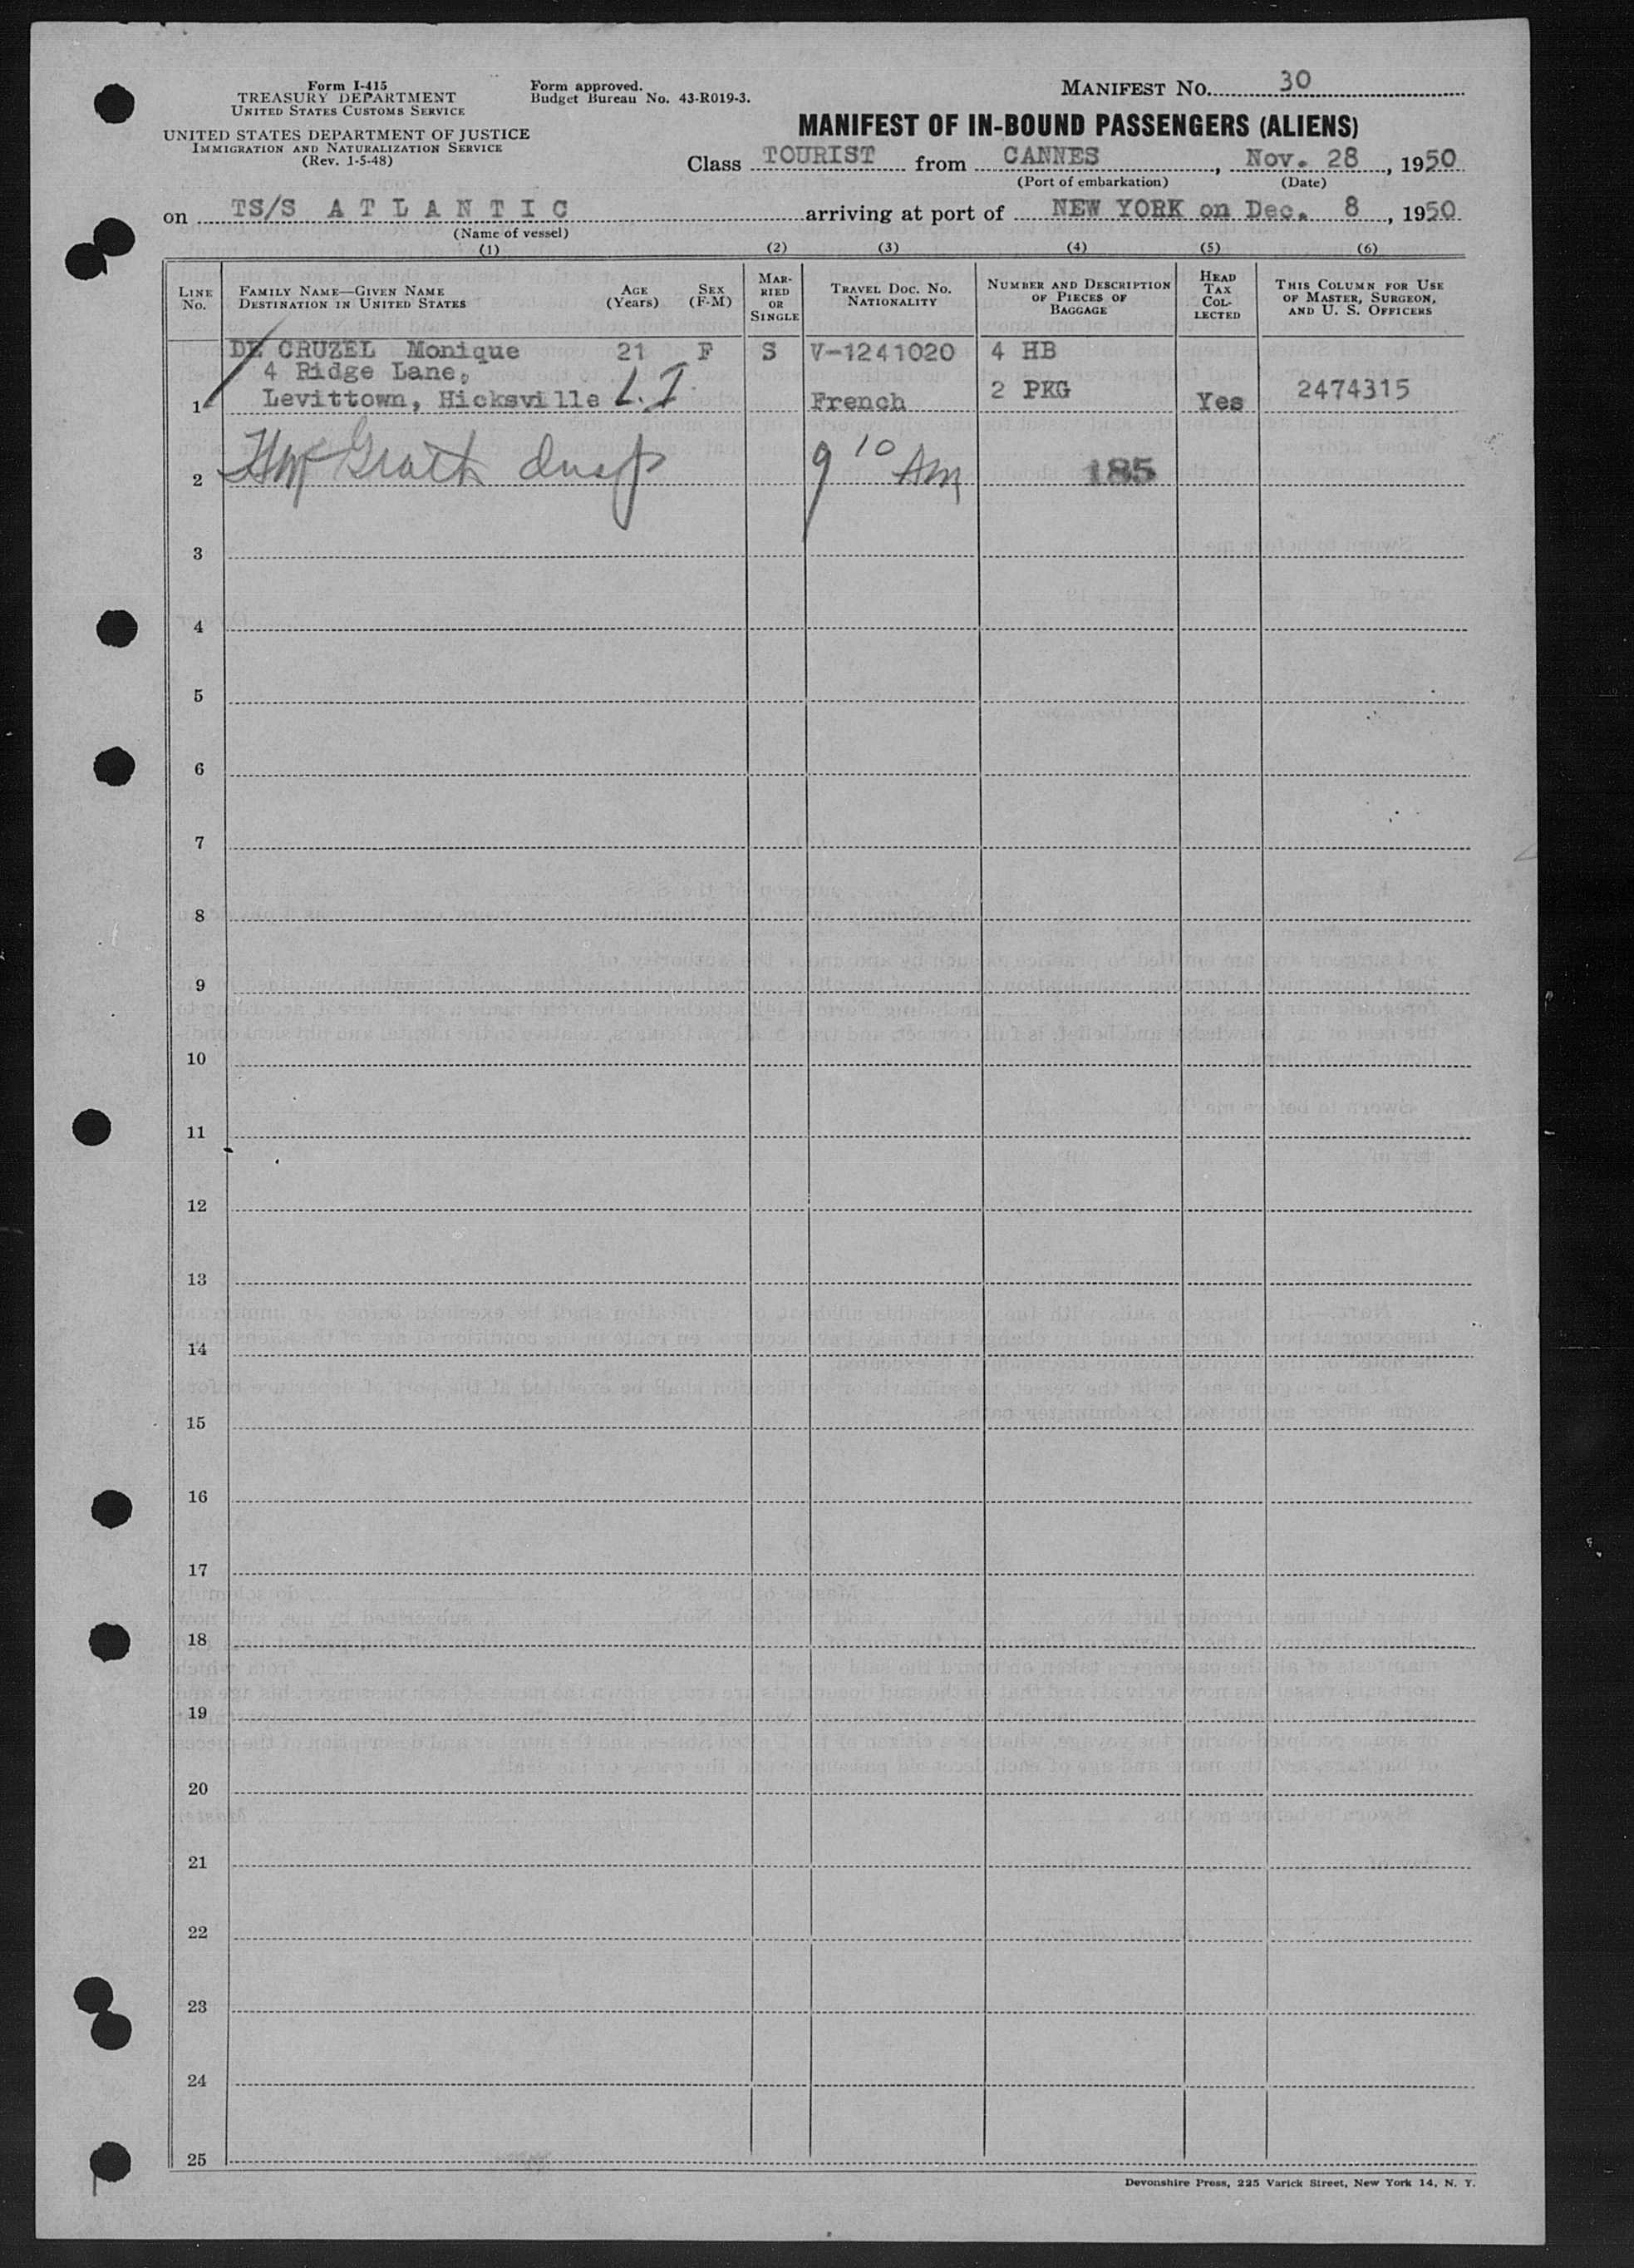 Form I-415
TREASURY DEPARTMENT
UNITED STATES CUSTOMS SERVICE
UNITED STATES DEPARTMENT OF JUSTICE
IMMIGRATION AND NATURALIZATION SERVICE
(Rev. 1-5-48)
Form approved.
Budget Bureau No. 43-R019-3.
MANIFEST NO. 30
MANIFEST OF IN-BOUND PASSENGERS (ALIENS)
Class TOURIST from CANNES, Nov. 28, 1950
(Port of embarkation) (Date)
on TS/S ATLANTIC arriving at port of NEW YORK on Dec. 8, 1950
(Name of vessel)
(1) (2) (3) (4) (5) (6)
LINE No. FAMILY NAME—GIVEN NAME DESTINATION IN UNITED STATES AGE (Years) SEX (F-M) MARRIED OR SINGLE TRAVEL DOC. NO. NATIONALITY NUMBER AND DESCRIPTION OF PIECES OF BAGGAGE HEAD TAX COLLECTED THIS COLUMN FOR USE OF MASTER, SURGEON, AND U. S. OFFICERS
DE CRUZEL Monique 21 F S V-1241020 4 HB
4 Ridge Lane,
1 Levittown, Hicksville L.I French 2 PKG Yes 2474315
2 McGrath Insp 9 10 AM 185
3
4
5
6
7
8
9
10
11
12
13
14
15
16
17
18
19
20
21
22
23
24
25
Devonshire Press, 225 Varick Street, New York 14, N. Y.